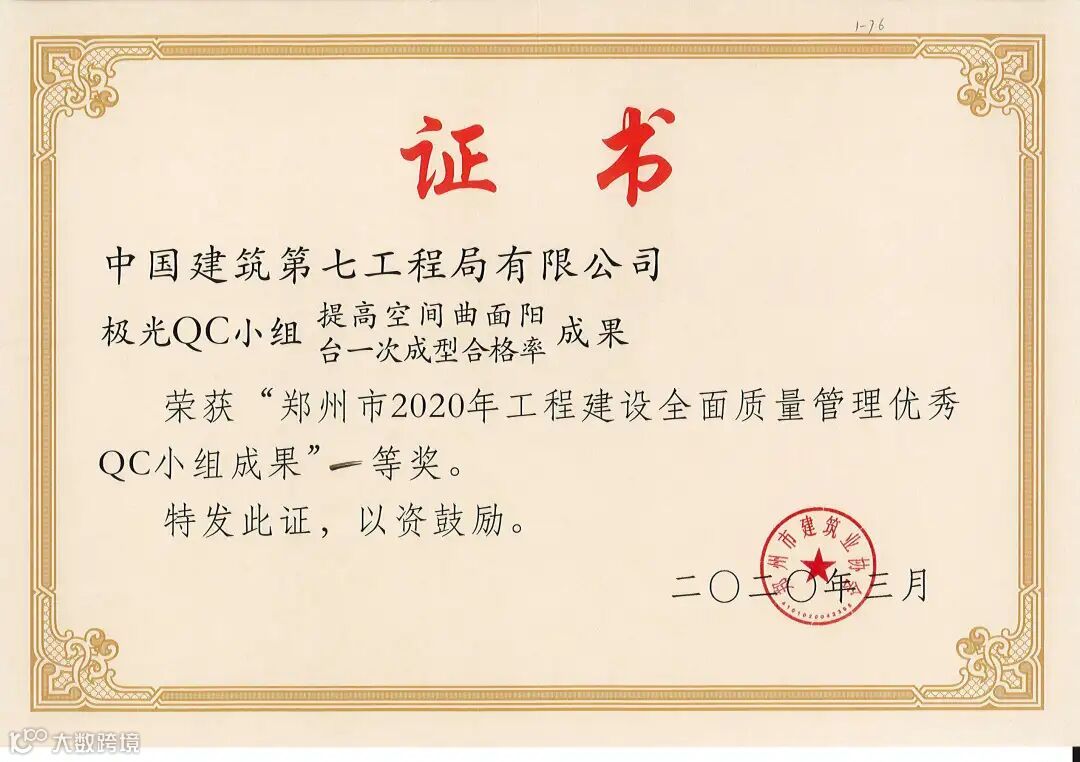 1-76
证书
中国建筑第七工程局有限公司
极光QC小组 提高空间曲面阳
台一次成型合格率 成果
荣获“郑州市2020年工程建设全面质量管理优秀
QC小组成果”一等奖。
特发此证，以资鼓励。
郑州市建筑业协会
二〇二〇年三月
大数跨境